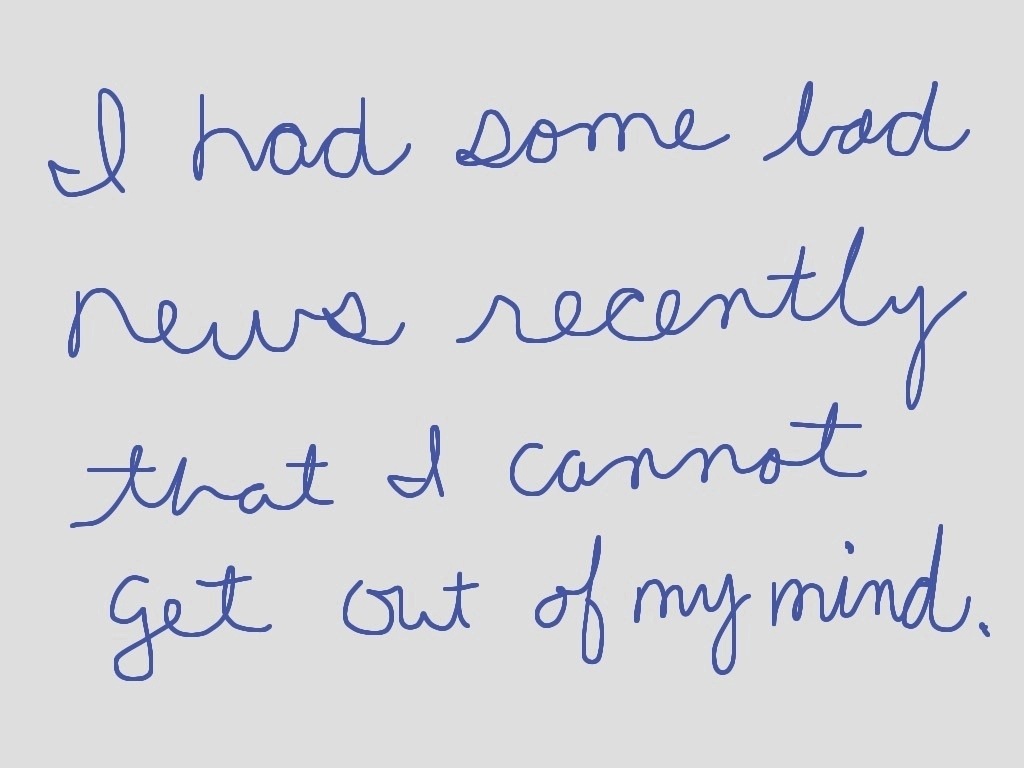 I had some bad
news recently
that I cannot
get out of my mind.